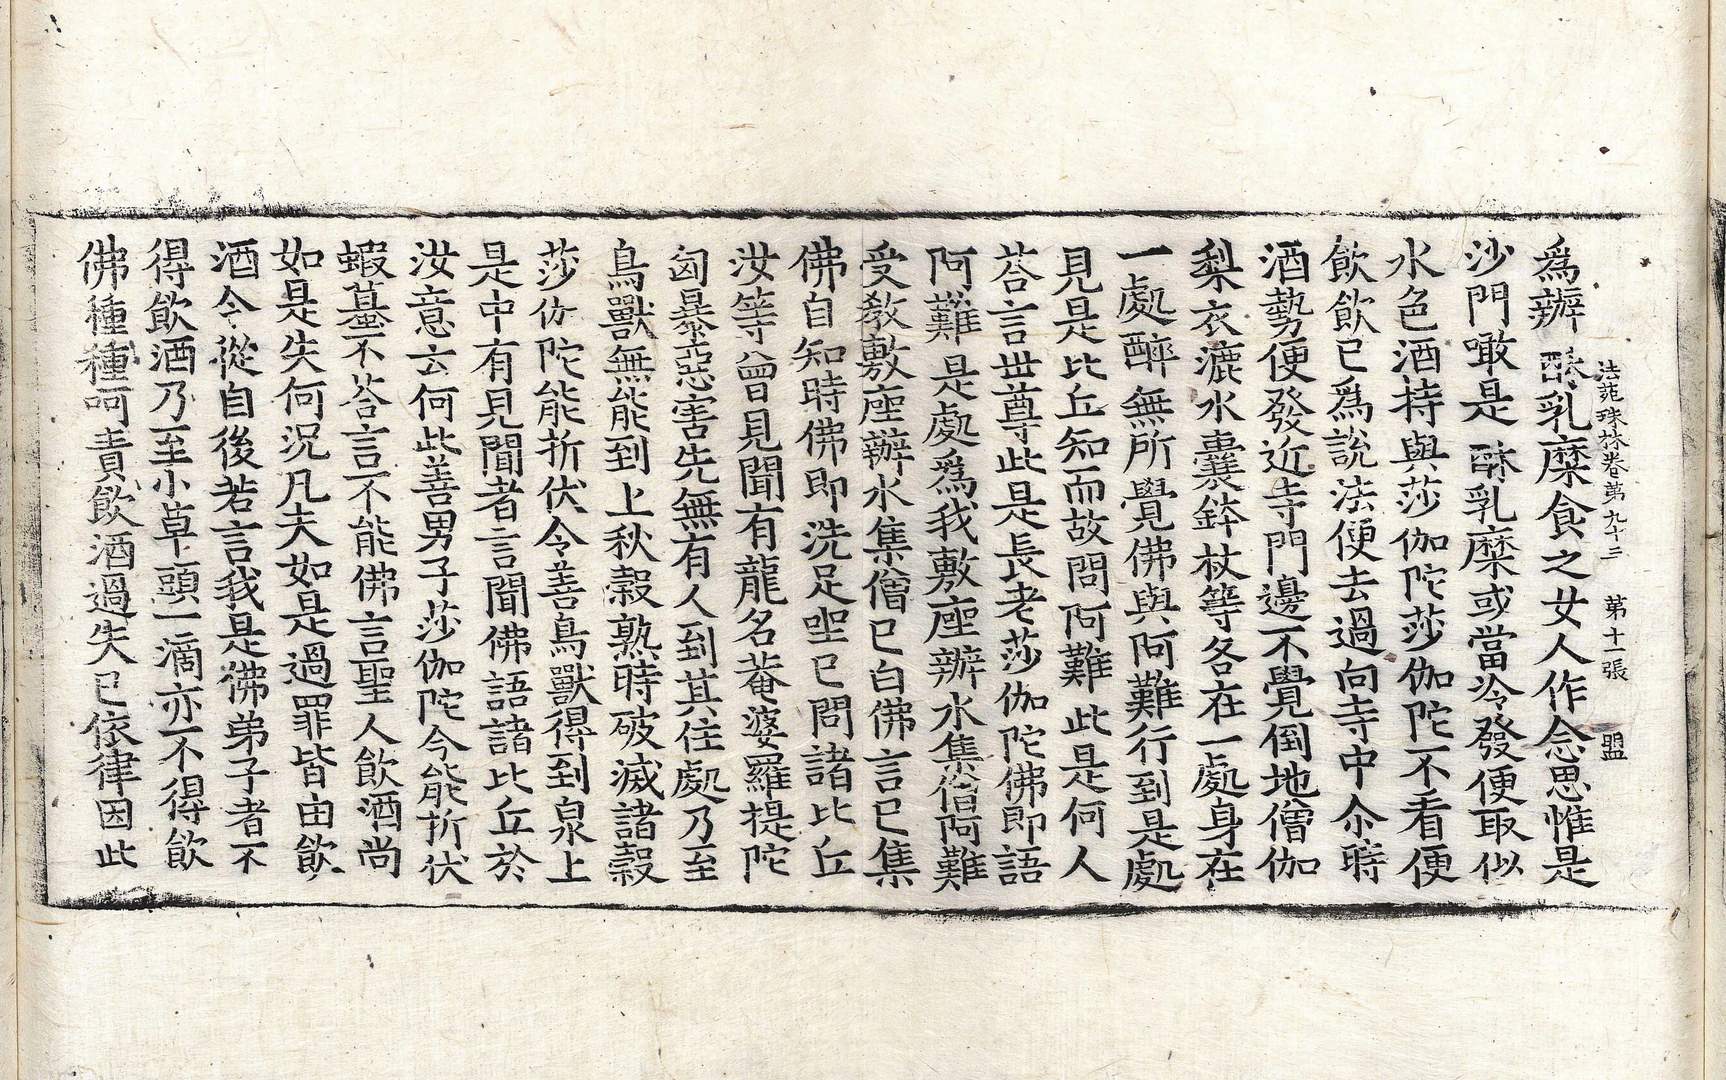 法苑珠林卷第九十三 第十一張 盟
爲辦酥乳糜食之女人作念思惟是
沙門噉是酥乳糜或當冷發便取似
水色酒持與莎伽陀莎伽陀不看便
飲飲已爲說法便去過向寺中尒時
酒勢便發近寺門邊不覺倒地僧伽
梨衣漉水囊鉢杖等各在一處身在
一處醉無所覺佛與阿難行到是處
見是比丘知而故問阿難此是何人
荅言世尊此是長老莎伽陀佛即語
阿難是處爲我敷座辦水集僧阿難
受教敷座辦水集僧已白佛言已集
佛自知時佛即洗足坐已問諸比丘
汝等曾見聞有龍名菴婆羅提陀
㐫㬥惡害先無有人到其住處乃至
鳥獸無能到上秋穀熟時破滅諸穀
莎伽陀能折伏令善鳥獸得到泉上
是中有見聞者言聞佛語諸比丘於
汝意云何此善男子莎伽陀今能折伏
蝦蟇不荅言不能佛言聖人飲酒尚
如是失何況凡夫如是過罪皆由飲
酒今從自後若言我是佛弟子者不
得飲酒乃至小草頭一滴亦不得飲
佛種種呵責飲酒過失已依律因此